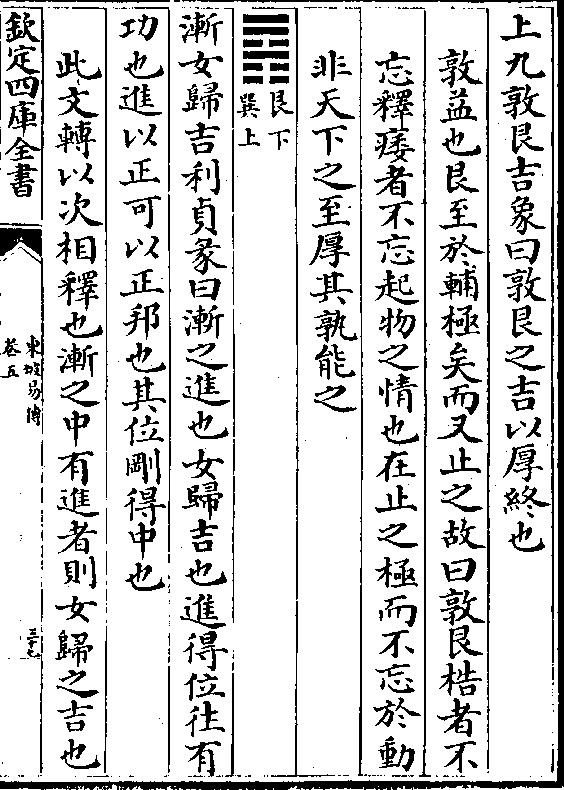 上九敦艮吉象曰敦艮之吉以厚終也
敦益也艮至於輔極矣而又止之故曰敦艮梏者不
忘釋痿者不忘起物之情也在止之極而不忘於動
非天下之至厚其孰能之
艮下
巽上
漸女歸吉利貞彖曰漸之進也女歸吉也進得位往有
功也進以正可以正邦也其位剛得中也
此文轉以次相釋也漸之中有進者則女歸之吉也
欽定四庫全書
東坡易傳
卷五
三十七